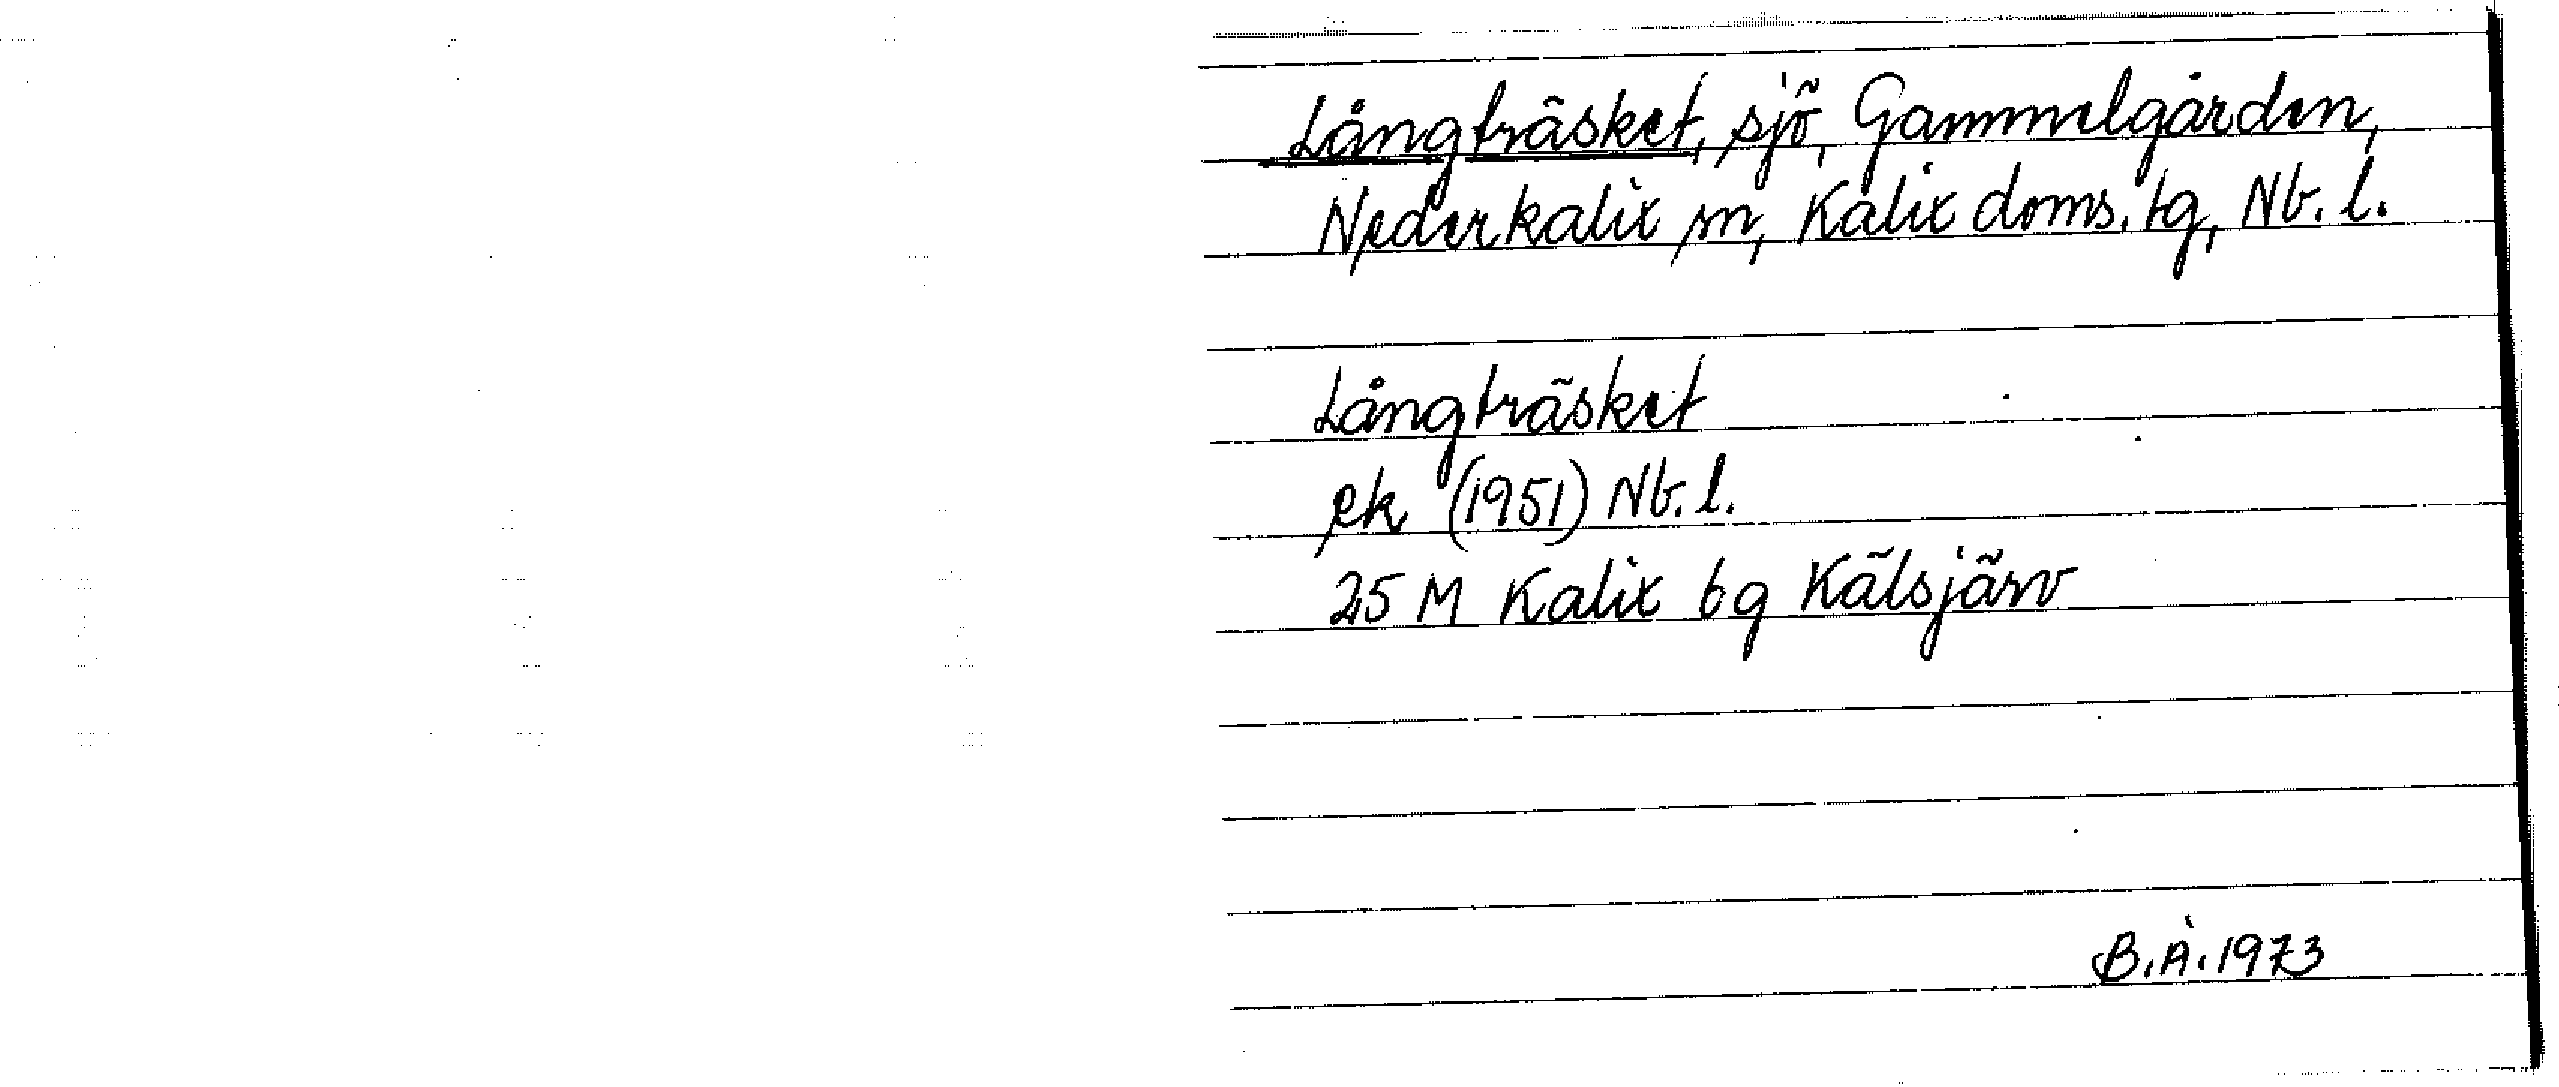 Långträsket, sjö, Gammelgården,
Nederkalix sn, Kalix doms. tg, Nb. l.
Långträsket
ek (1951) Nb. l.
25 M Kalix 6g Kälsjärv
B.Å. 1973